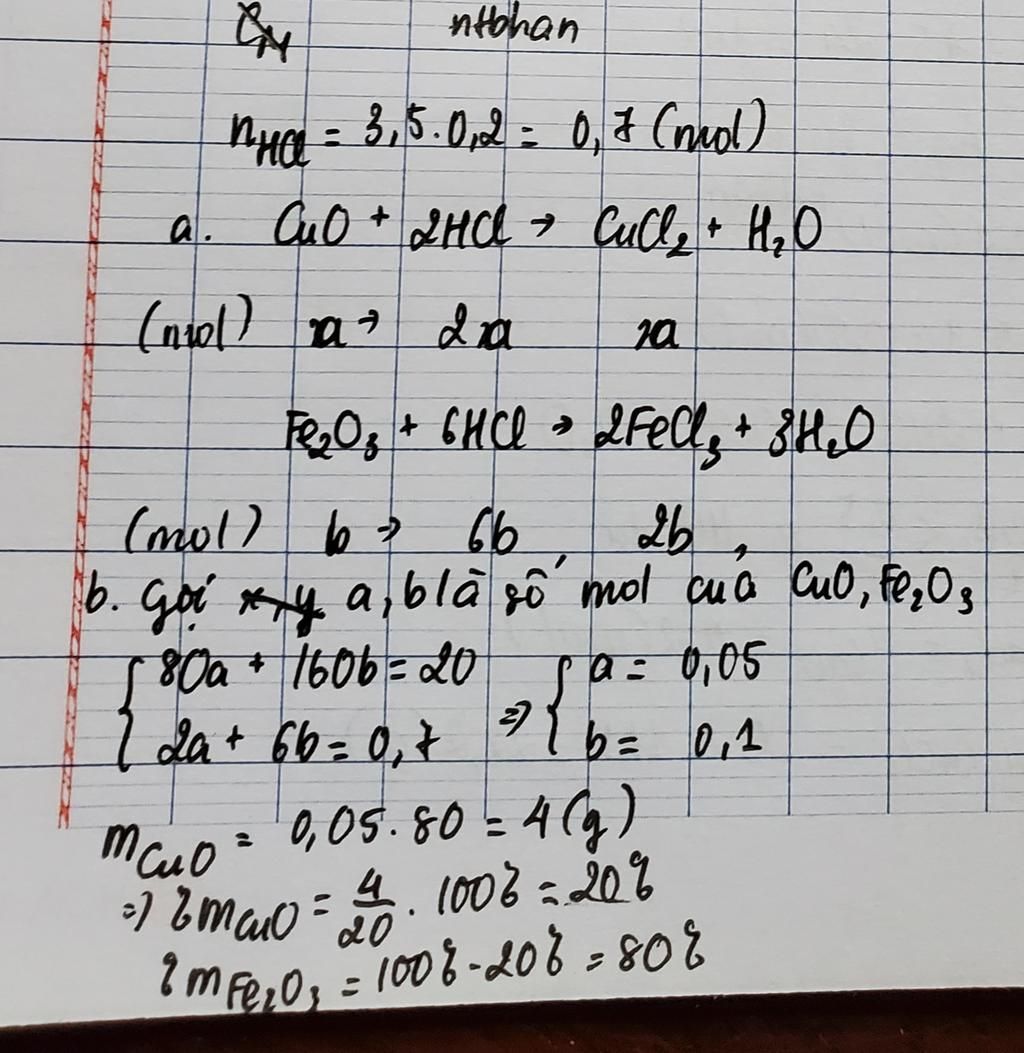 nHbhan
n_HCl = 3,5.0,2 = 0,7 (mol)
a. CuO + 2HCl → CuCl₂ + H₂O
(mol) a → 2a a
Fe₂O₃ + 6HCl → 2FeCl₃ + 3H₂O
(mol) b → 6b 2b
b. Gọi x, y a, b là số mol của CuO, Fe₂O₃
{ 80a + 160b = 20 ⇒ { a = 0,05
{ 2a + 6b = 0,7 { b = 0,1
m_CuO = 0,05.80 = 4 (g)
⇒ %m_CuO = 4/20 . 100% = 20%
%m_Fe₂O₃ = 100% - 20% = 80%